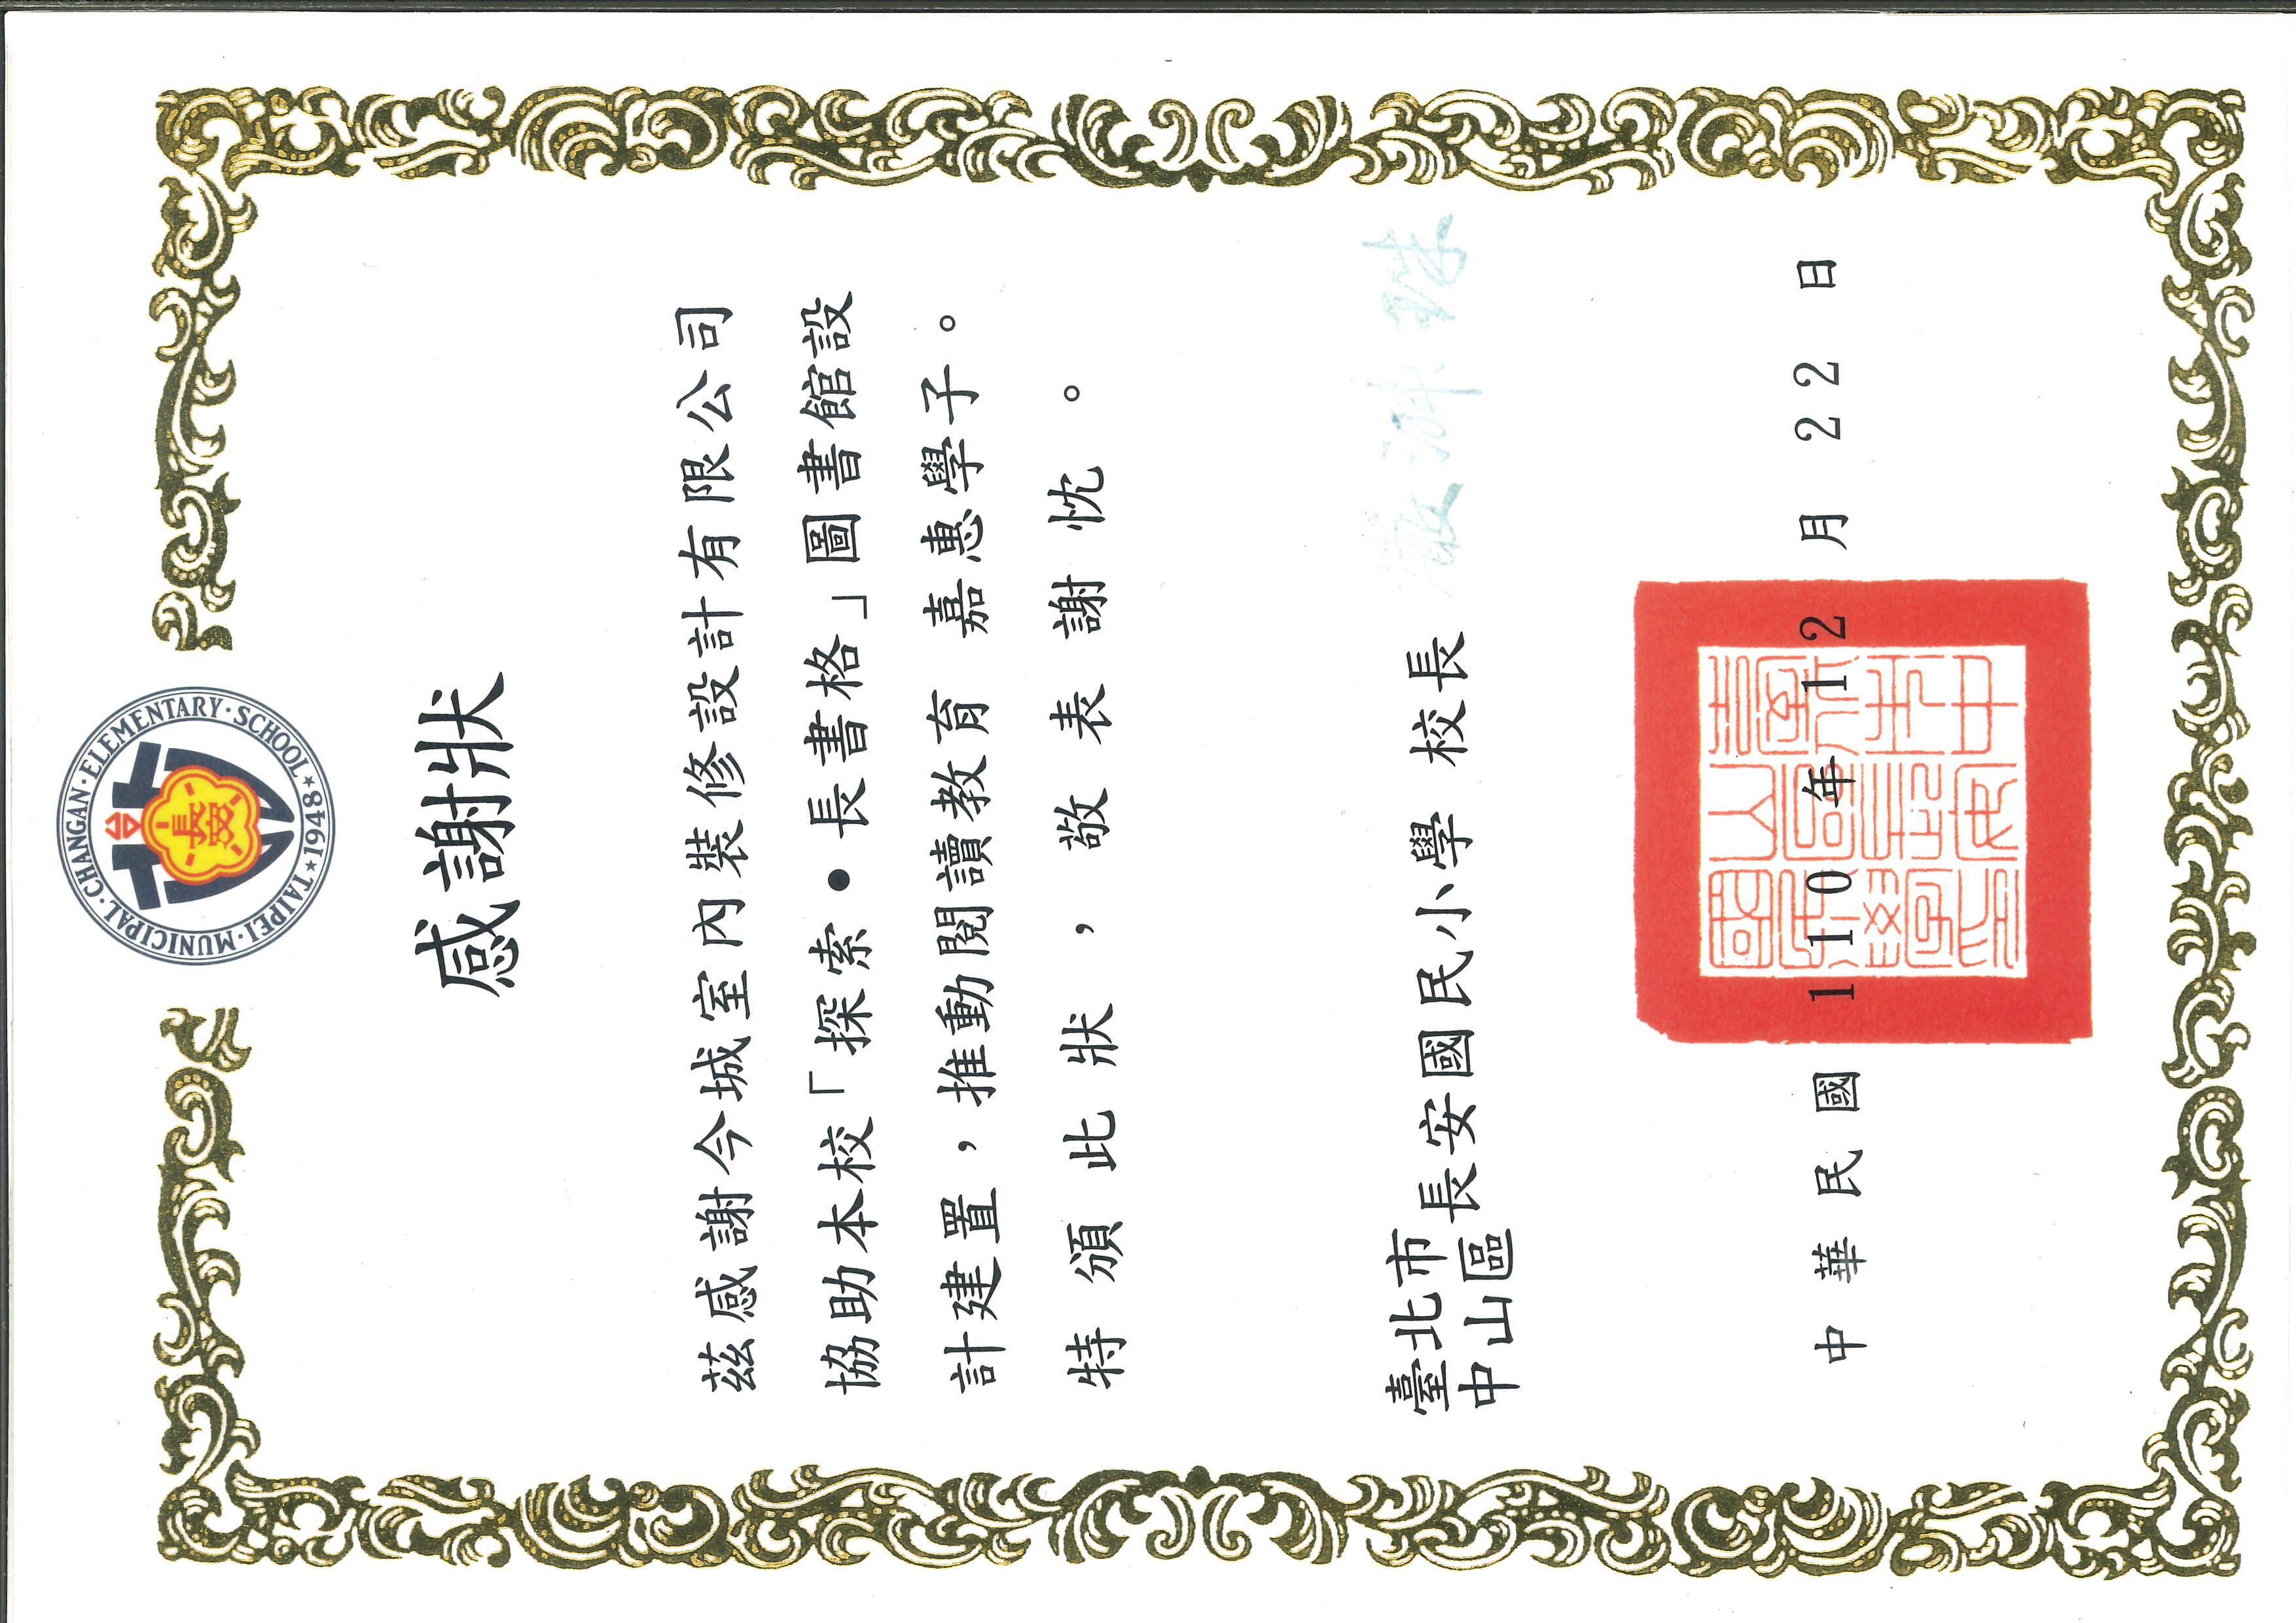 TAIPEI·MUNICIPAL·CHANGAN·ELEMENTARY·SCHOOL★1948★
長安
感謝狀
茲感謝今城室內裝修設計有限公司
協助本校「探索•長書格」圖書館設
計建置，推動閱讀教育 嘉惠學子。
特頒此狀，敬表謝忱。
臺北市
中山區
長安國民小學 校長
中華民國 110年12月22日